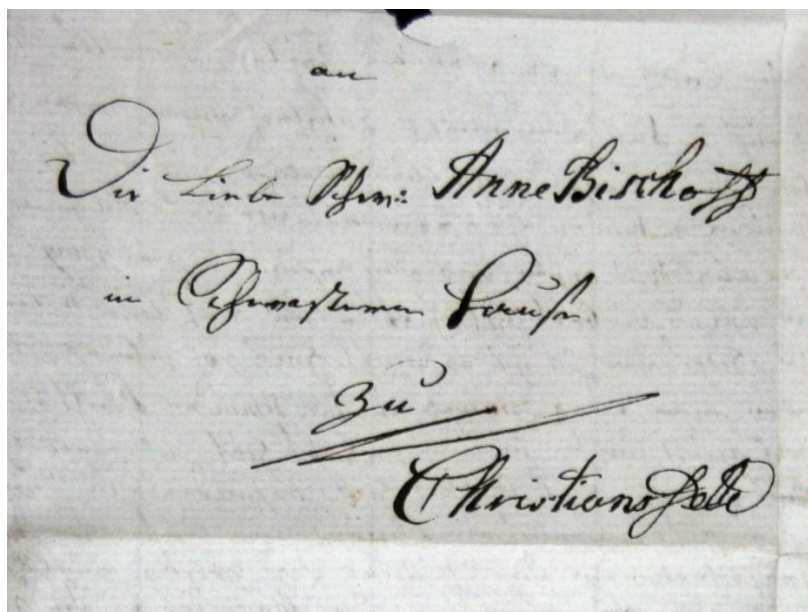 an
Die Liebe Schw: Anne Bischoff
in Schwestern Hause
zu
Christiansfeld